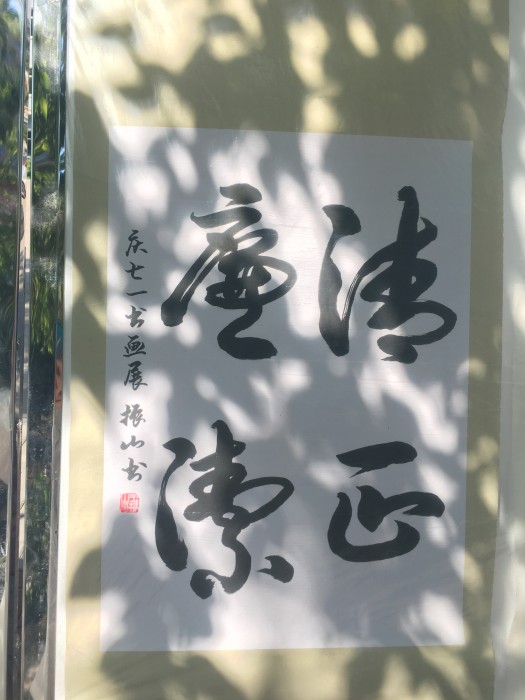 清正
廉潔
庆七一书画展 振山书